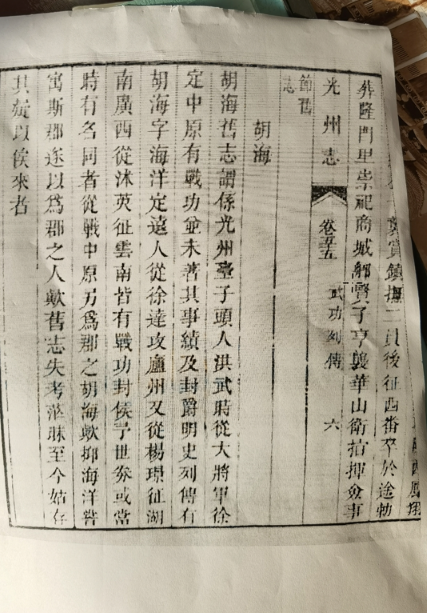 西鳳翔
賞鎮撫一員後征西番卒於途勅
葬隆門里崇祀商城鄉賢子亨襲華山衛指揮僉事
光州志 卷 五 武功列傳 六
節舊
志
胡海
胡海舊志謂係光州臺子頭人洪武時從大將軍徐
定中原有戰功並未著其事績及封爵明史列傳有
胡海字海洋定遠人從徐達攻廬州又從楊璟征湖
南廣西從沐英征雲南皆有戰功封侯予世券或當
時有名同者從戰中原另爲郡之胡海歟抑海洋嘗
寓斯郡遂以爲郡之人歟舊志失考茫昧至今姑存
其疑以俟來者